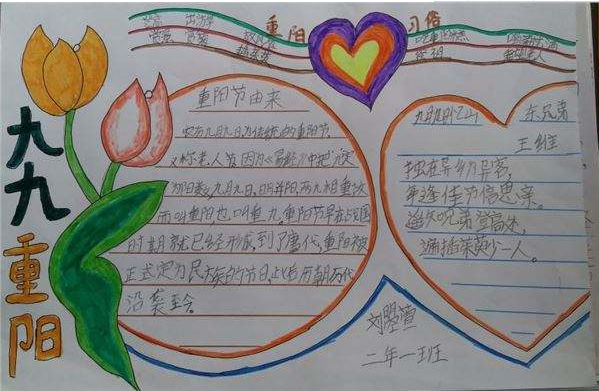 重阳 习俗
赏菊
九九重阳
重阳节由来
农历九月九日,为传统的重阳节
又称老人节,因为《易经》中把六定
为阴数,九月九日,日月并阳,两九相重故
而叫重阳也叫重九,重阳节早在战国
时期就已经形成,到了唐代,重阳被
正式定为民族的节日,上此后历朝历代
沿袭至今。
九月九日忆山 东兄弟
王维
独在异乡为异客,
每逢佳节倍思亲。
遥知兄弟登高处,
遍插茱萸少一人。
二年一班